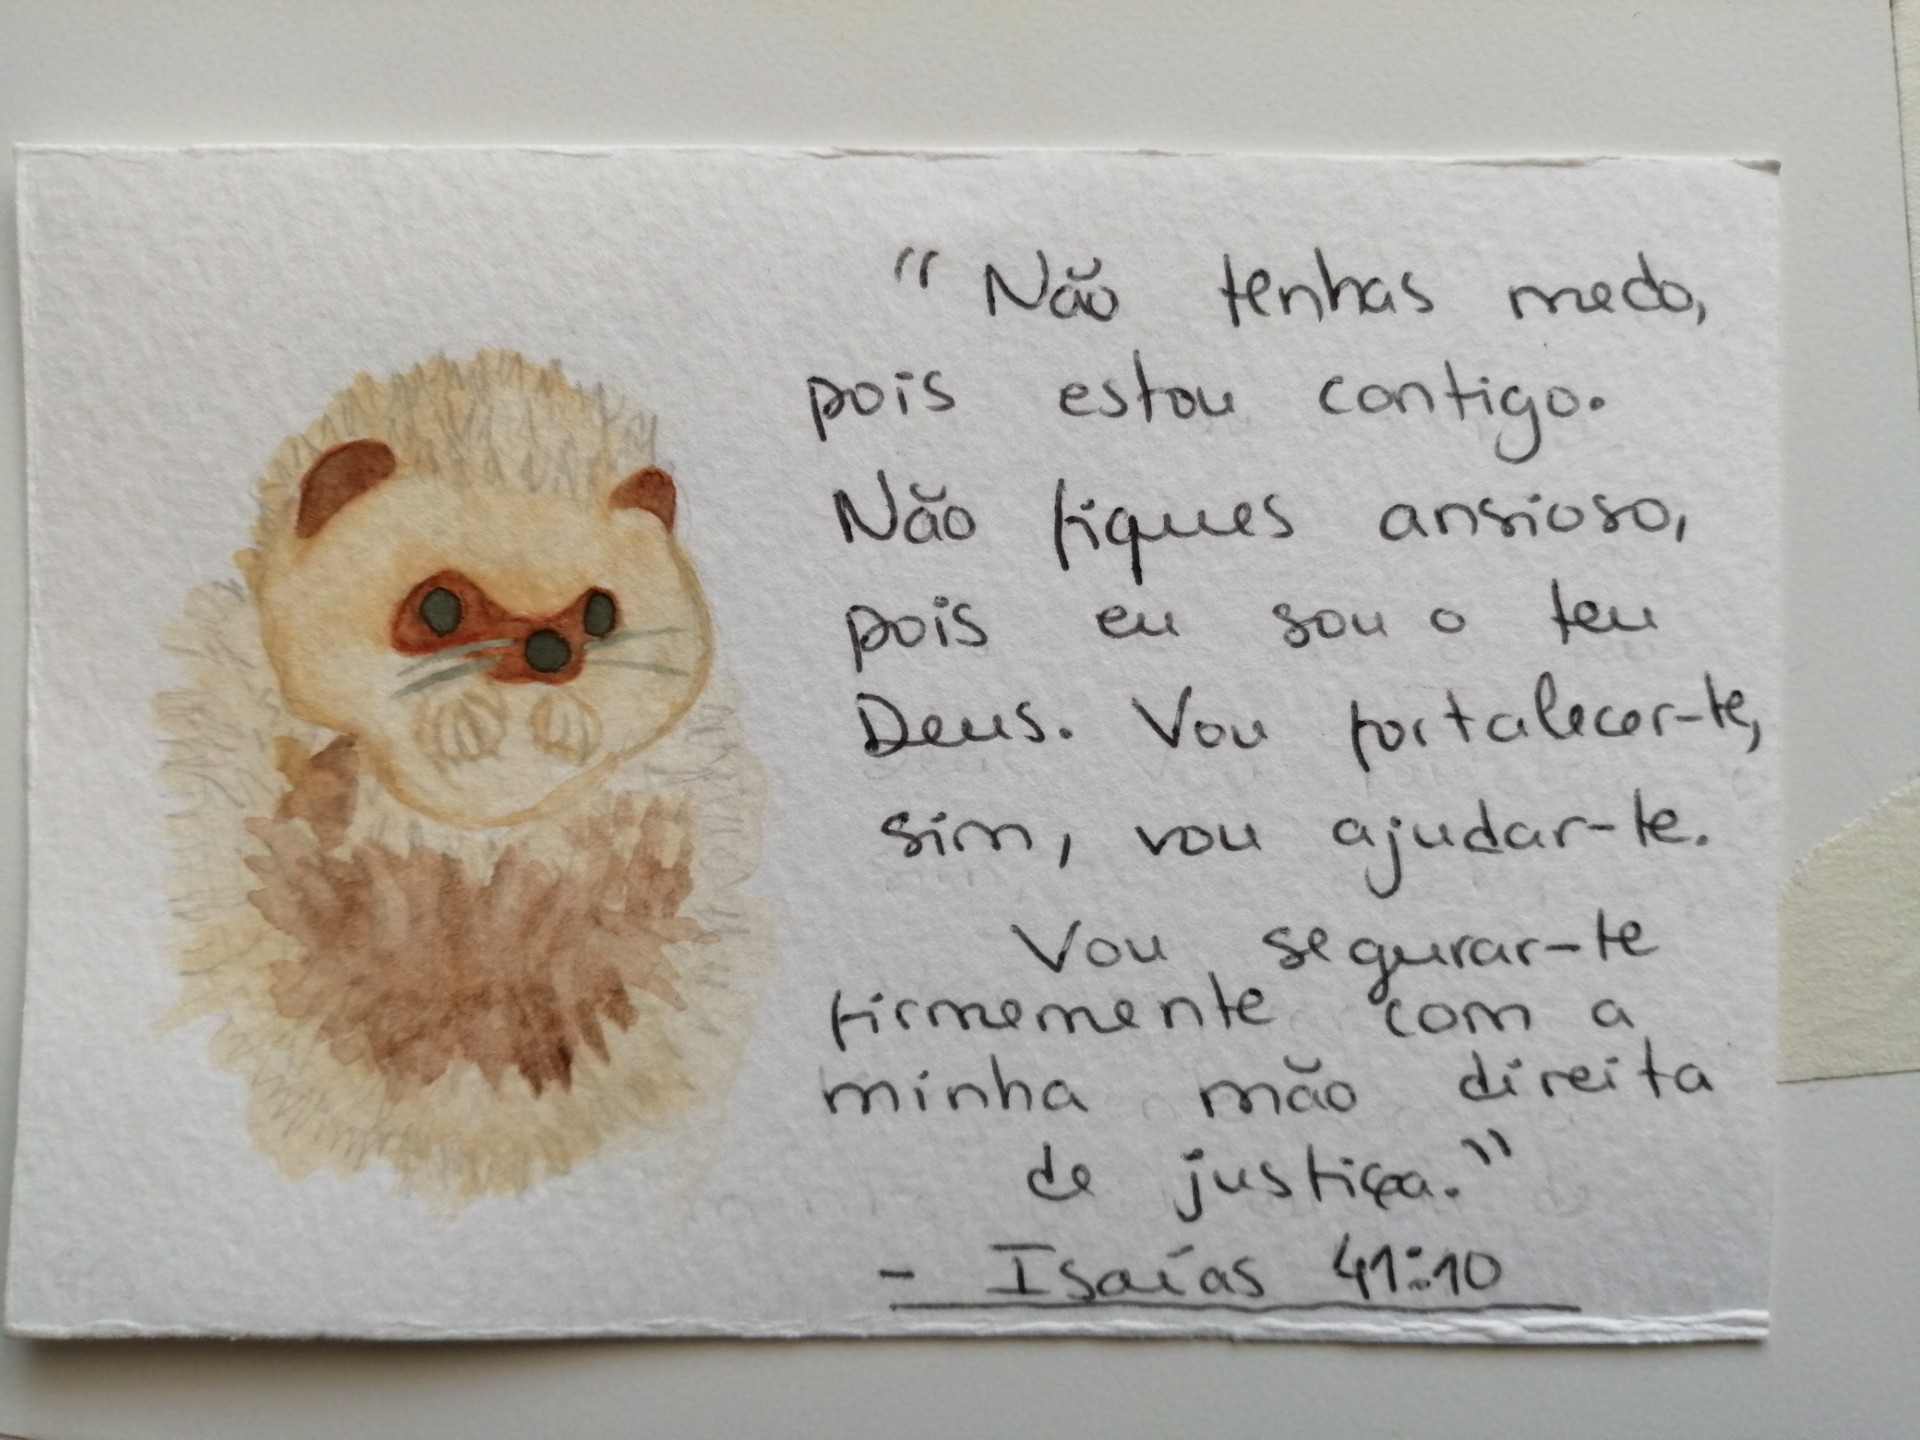 "Não tenhas medo,
pois estou contigo.
Não fiques ansioso,
pois eu sou o teu
Deus. Vou fortalecer-te,
sim, vou ajudar-te.
Vou segurar-te
firmemente com a
minha mão direita
de justiça."
- Isaías 41:10